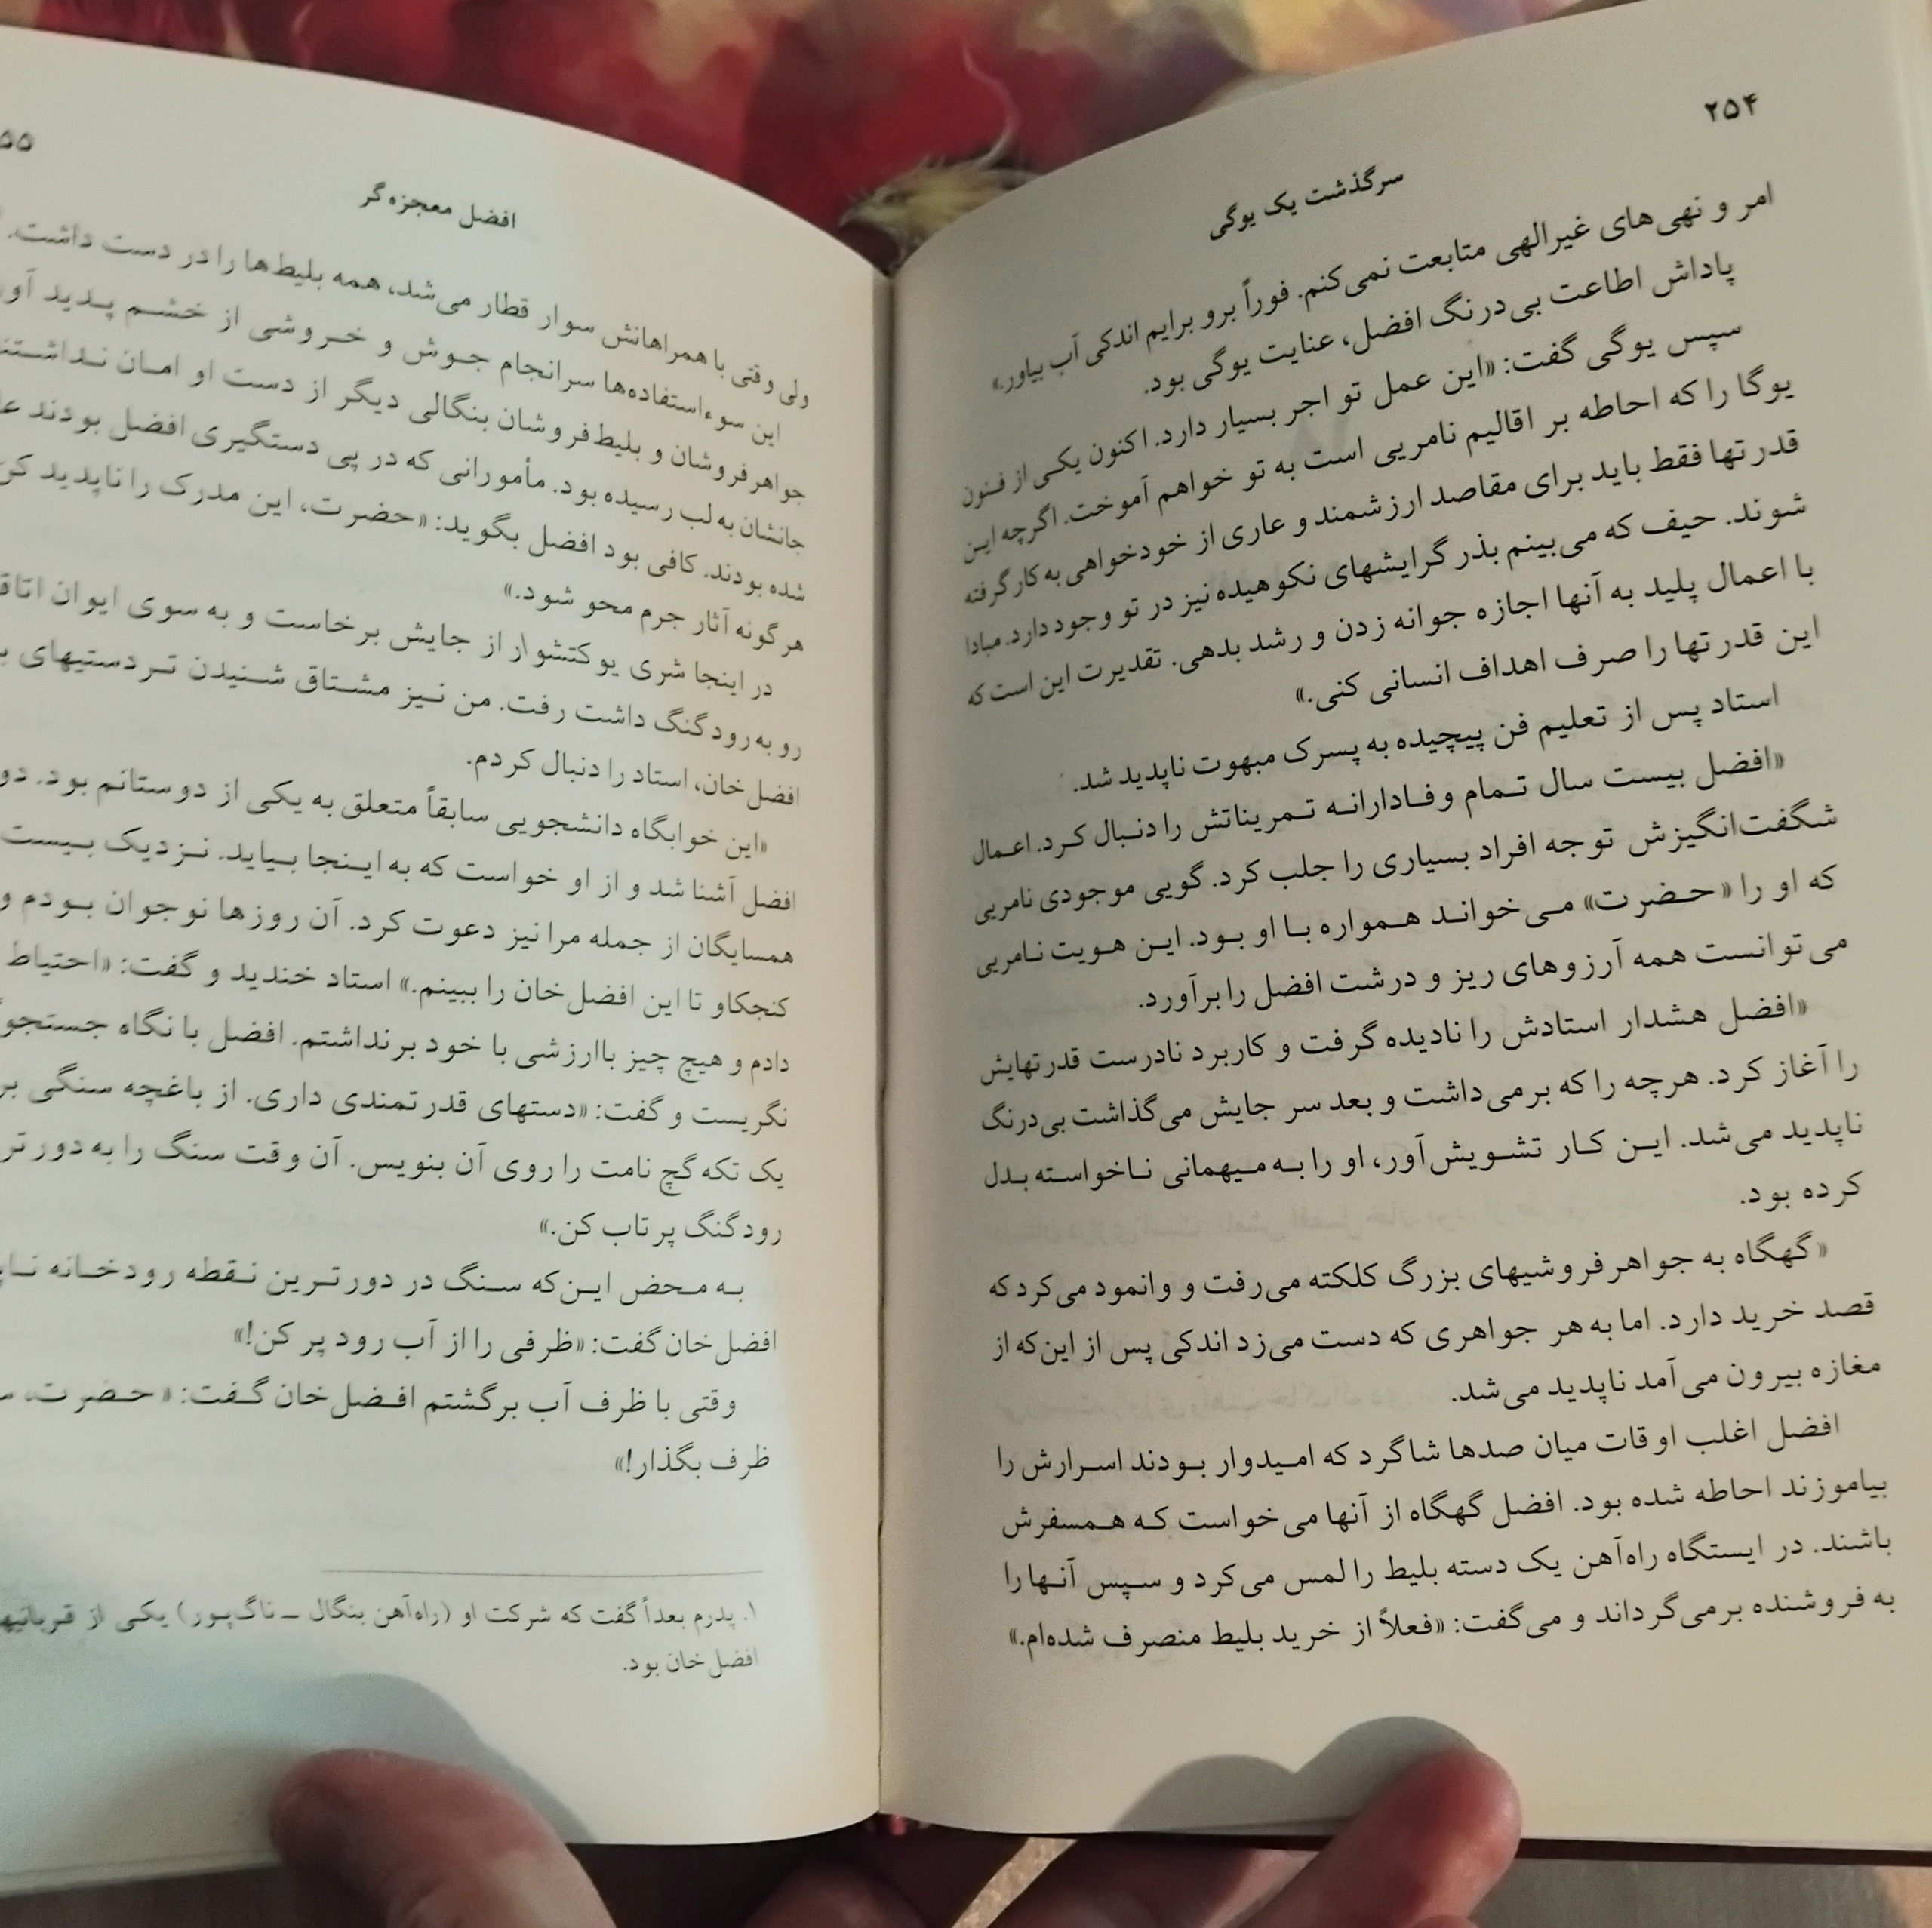 ۲۵۴
سرگذشت یک یوگی
امر و نهی‌های غیرالهی متابعت نمی‌کنم. فوراً برو برایم اندکی آب بیاور.»
پاداش اطاعت بی‌درنگ افضل، عنایت یوگی بود.
سپس یوگی گفت: «این عمل تو اجر بسیار دارد. اکنون یکی از فنون
یوگا را که احاطه بر اقالیم نامریی است به تو خواهم آموخت. اگرچه این
قدرتها فقط باید برای مقاصد ارزشمند و عاری از خودخواهی به کار گرفته
شوند. حیف که می‌بینم بذر گرایشهای نکوهیده نیز در تو وجود دارد. مبادا
با اعمال پلید به آنها اجازه جوانه زدن و رشد بدهی. تقدیرت این است که
این قدرتها را صرف اهداف انسانی کنی.»
استاد پس از تعلیم فن پیچیده به پسرک مبهوت ناپدید شد.
«افضل بیست سال تمام وفادارانه تمریناتش را دنبال کرد. اعمال
شگفت‌انگیزش توجه افراد بسیاری را جلب کرد. گویی موجودی نامریی
که او را «حضرت» می‌خواند همواره با او بود. این هویت نامریی
می‌توانست همه آرزوهای ریز و درشت افضل را برآورد.
«افضل هشدار استادش را نادیده گرفت و کاربرد نادرست قدرتهایش
را آغاز کرد. هرچه را که برمی‌داشت و بعد سر جایش می‌گذاشت بی‌درنگ
ناپدید می‌شد. این کار تشویش‌آور، او را به میهمانی ناخواسته بدل
کرده بود.
«گهگاه به جواهرفروشیهای بزرگ کلکته می‌رفت و وانمود می‌کرد که
قصد خرید دارد. اما به هر جواهری که دست می‌زد اندکی پس از این‌که از
مغازه بیرون می‌آمد ناپدید می‌شد.
افضل اغلب اوقات میان صدها شاگرد که امیدوار بودند اسرارش را
بیاموزند احاطه شده بود. افضل گهگاه از آنها می‌خواست که همسفرش
باشند. در ایستگاه راه‌آهن یک دسته بلیط را لمس می‌کرد و سپس آنها را
به فروشنده برمی‌گرداند و می‌گفت: «فعلاً از خرید بلیط منصرف شده‌ام.»
افضل معجزه‌گر
ولی وقتی با همراهانش سوار قطار می‌شد، همه بلیط‌ها را در دست داشت.
این سوءاستفاده‌ها سرانجام جوش و خروشی از خشم پدید
جواهرفروشان و بلیط‌فروشان بنگالی دیگر از دست او امان
جانشان به لب رسیده بود. مأمورانی که در پی دستگیری افضل بودند
شده بودند. کافی بود افضل بگوید: «حضرت، این مدرک را ناپدید
هرگونه آثار جرم محو شود.»
در اینجا شری یوکتشوار از جایش برخاست و به سوی ایوان
رو به رود گنگ داشت رفت. من نیز مشتاق شنیدن تردستیهای
افضل‌خان، استاد را دنبال کردم.
«این خوابگاه دانشجویی سابقاً متعلق به یکی از دوستانم بود.
افضل آشنا شد و از او خواست که به اینجا بیاید. نزدیک بیست
همسایگان از جمله مرا نیز دعوت کرد. آن روزها نوجوان بودم و
کنجکاو تا این افضل‌خان را ببینم.» استاد خندید و گفت: «احتیاط
دادم و هیچ چیز باارزشی با خود برنداشتم. افضل با نگاه
نگریست و گفت: «دستهای قدرتمندی داری. از باغچه سنگی
یک تکه گچ نامت را روی آن بنویس. آن وقت سنگ را به
رود گنگ پرتاب کن.»
به محض این‌که سنگ در دورترین نقطه رودخانه
افضل‌خان گفت: «ظرفی را از آب رود پر کن!»
وقتی با ظرف آب برگشتم افضل‌خان گفت: «حضرت،
ظرف بگذار!»
۱. پدرم بعداً گفت که شرکت او (راه‌آهن بنگال ــ ناگ‌پور) یکی از
افضل‌خان بود.